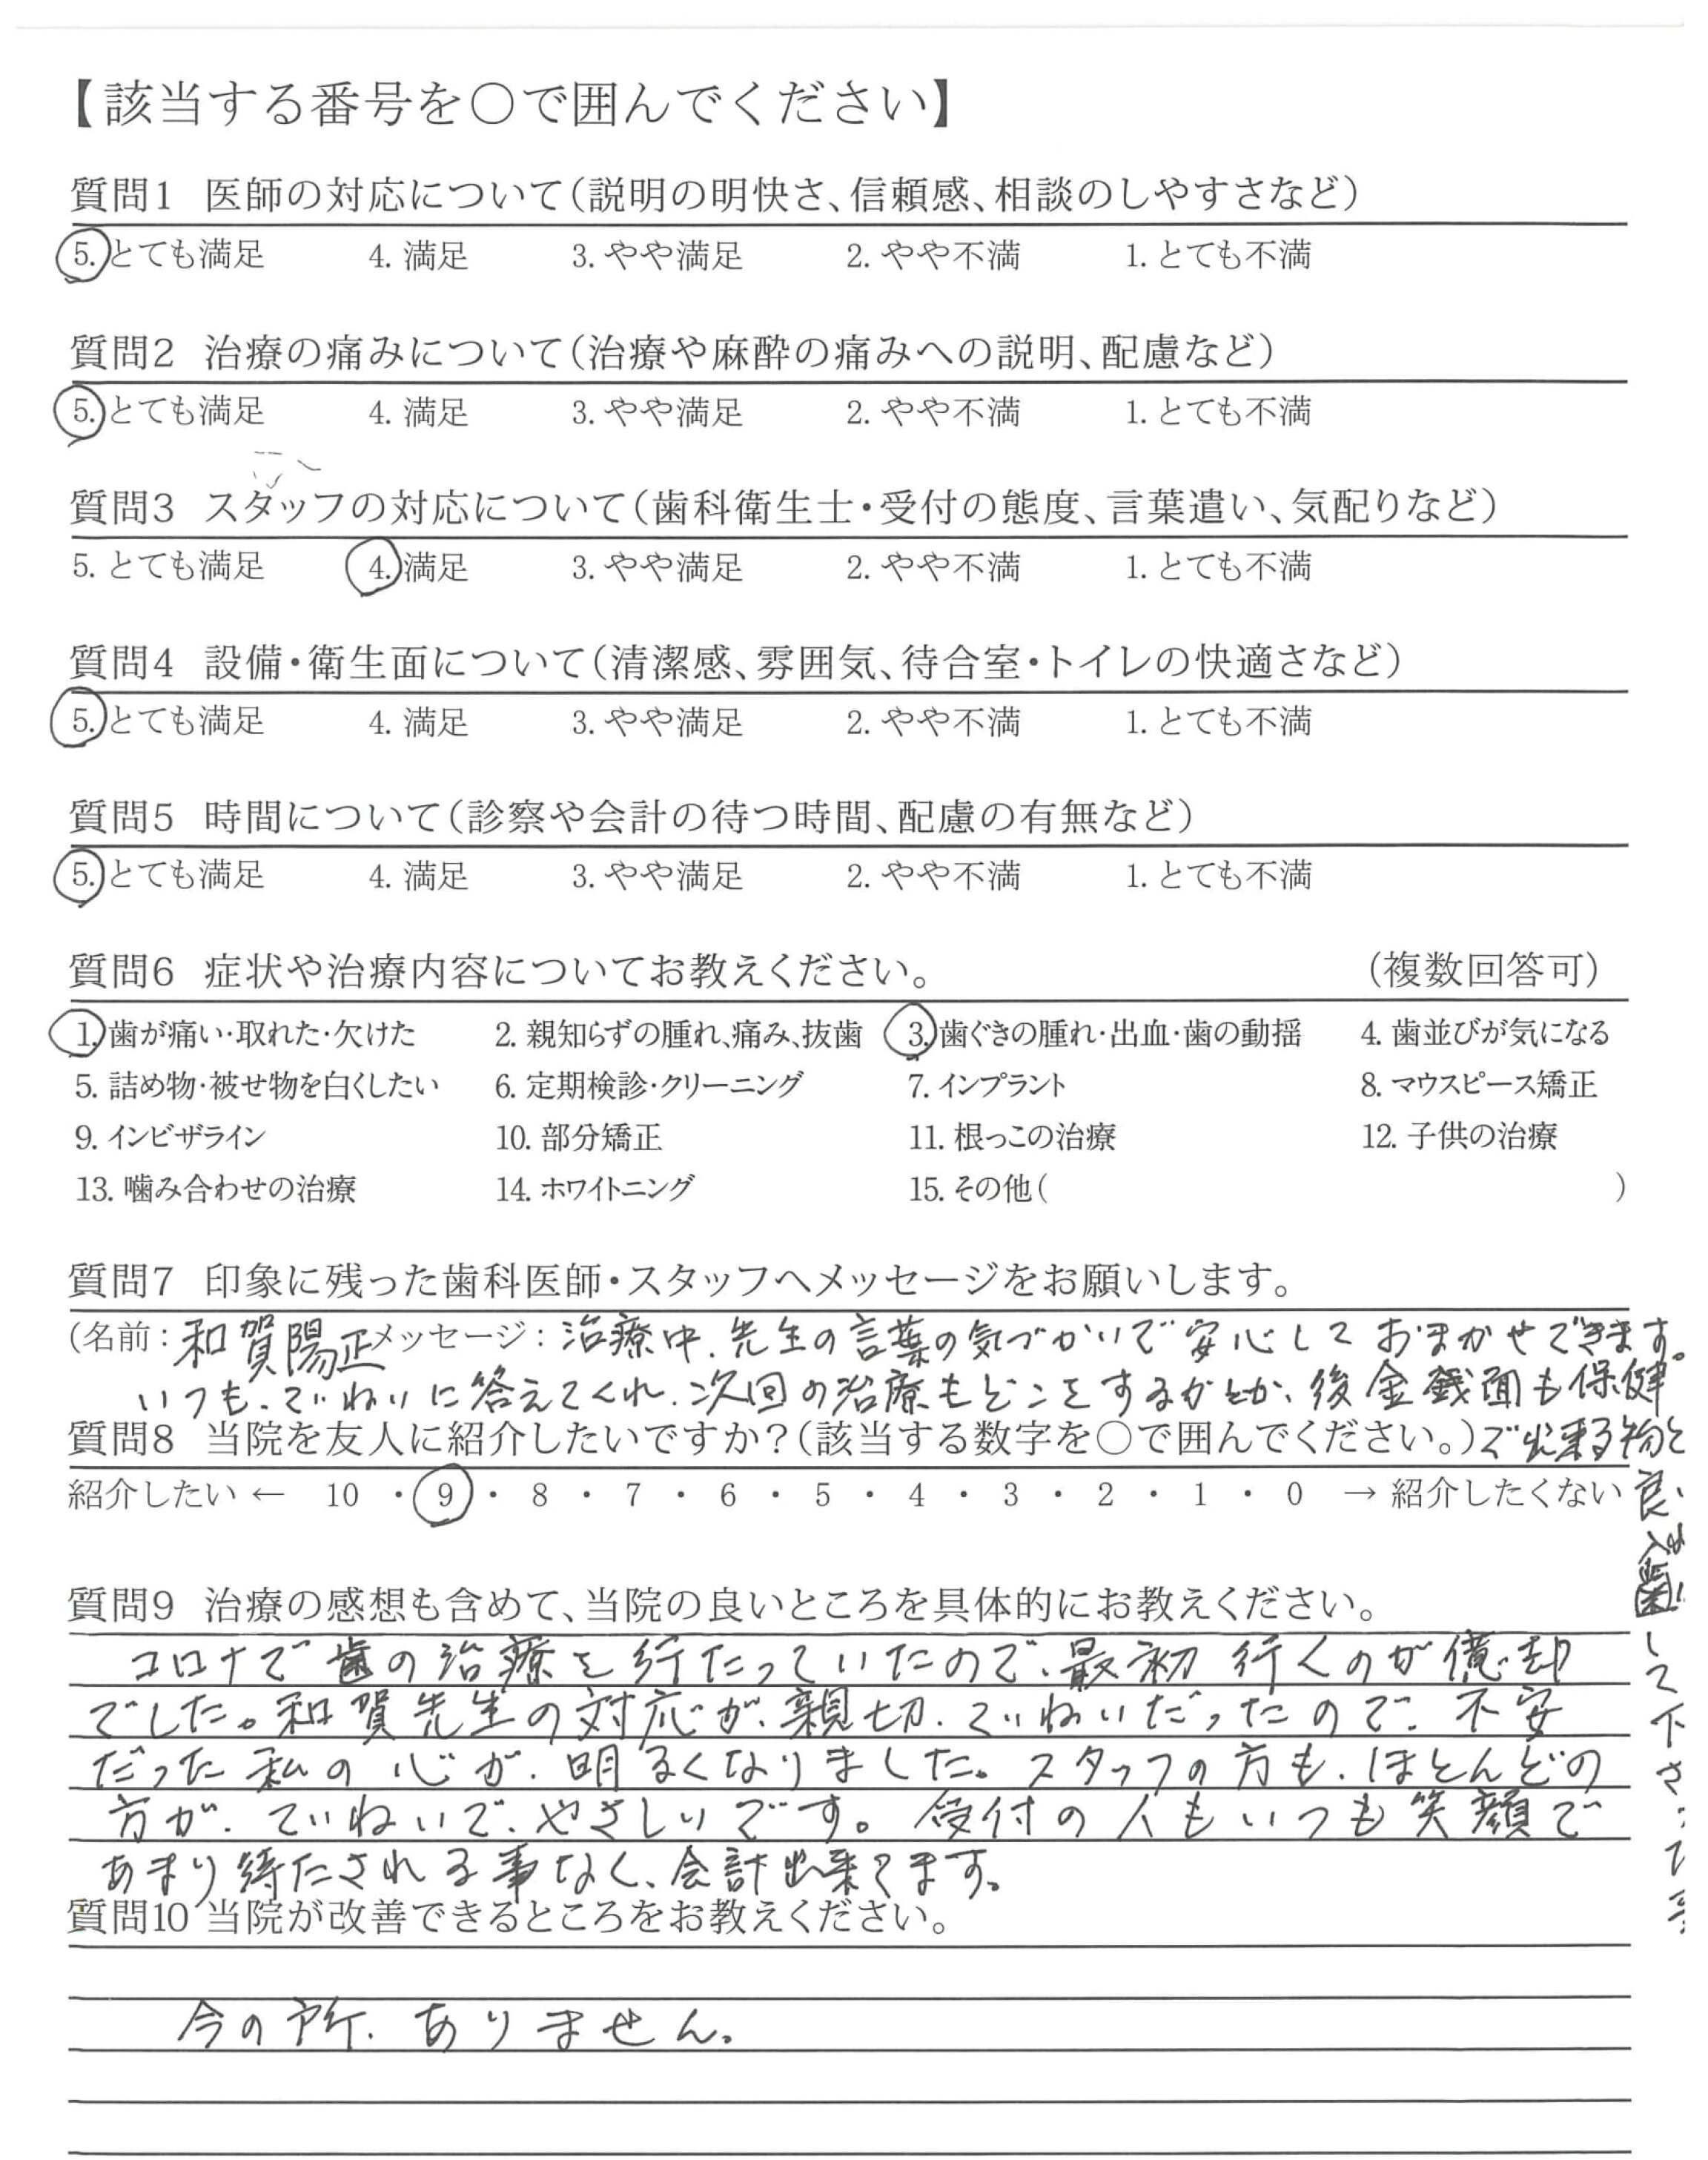 【該当する番号を○で囲んでください】
質問1 医師の対応について(説明の明快さ、信頼感、相談のしやすさなど)
5. とても満足 4. 満足 3. やや満足 2. やや不満 1. とても不満
質問2 治療の痛みについて(治療や麻酔の痛みへの説明、配慮など)
5. とても満足 4. 満足 3. やや満足 2. やや不満 1. とても不満
質問3 スタッフの対応について(歯科衛生士・受付の態度、言葉遣い、気配りなど)
5. とても満足 4. 満足 3. やや満足 2. やや不満 1. とても不満
質問4 設備・衛生面について(清潔感、雰囲気、待合室・トイレの快適さなど)
5. とても満足 4. 満足 3. やや満足 2. やや不満 1. とても不満
質問5 時間について(診察や会計の待つ時間、配慮の有無など)
5. とても満足 4. 満足 3. やや満足 2. やや不満 1. とても不満
質問6 症状や治療内容についてお教えください。 (複数回答可)
1. 歯が痛い・取れた・欠けた 2. 親知らずの腫れ、痛み、抜歯 3. 歯ぐきの腫れ・出血・歯の動揺 4. 歯並びが気になる
5. 詰め物・被せ物を白くしたい 6. 定期検診・クリーニング 7. インプラント 8. マウスピース矯正
9. インビザライン 10. 部分矯正 11. 根っこの治療 12. 子供の治療
13. 噛み合わせの治療 14. ホワイトニング 15. その他( )
質問7 印象に残った歯科医師・スタッフへメッセージをお願いします。
(名前: 和賀陽正 メッセージ: 治療中、先生の言葉の気づかいで安心しておまかせできます。
いつも、ていねいに答えてくれ、次回の治療もどこをするかとか、後金銭面も保健
質問8 当院を友人に紹介したいですか?(該当する数字を○で囲んでください。) で出来る物と
紹介したい ← 10 ・ 9 ・ 8 ・ 7 ・ 6 ・ 5 ・ 4 ・ 3 ・ 2 ・ 1 ・ 0 → 紹介したくない
良い
入歯
して下さっ
質問9 治療の感想も含めて、当院の良いところを具体的にお教えください。
コロナで歯の治療を行たっていたので、最初行くのが億却
でした。和賀先生の対応が、親切、ていねいだったので、不安
だった私の心が、明るくなりました。スタッフの方も、ほとんどの
方が、ていねいで、やさしいです。受付の人もいつも笑顔で
あまり待たされる事なく、会計出来てます。
質問10 当院が改善できるところをお教えください。
今の所、ありません。